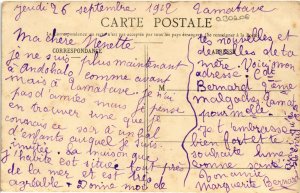 jeudi 26 septembre 1912 Tamatave
CARTE POSTALE
Ma chère Ninette
CORRESPONDANCE
Je ne suis plus maintenant
à Andohalo comme avant
mais à Tamatave je n'ai
pas d'amies mais j'ai pensé
en trouver une que je
connais à voir à un bal
d'enfants auquel je suis
invitée. La maison que
j'habite est située près
de la mer et est très
agréable. Donne moi de
tes nouvelles et
de celles de ta
mère. Voici mon
adresse: Cdt
Bernard 2ème
malgaches Tamatave
pour Melle.
Je t'embrasse
bien fort et te
souhaite une
bonne
Ton amie
Marguerite Bernard